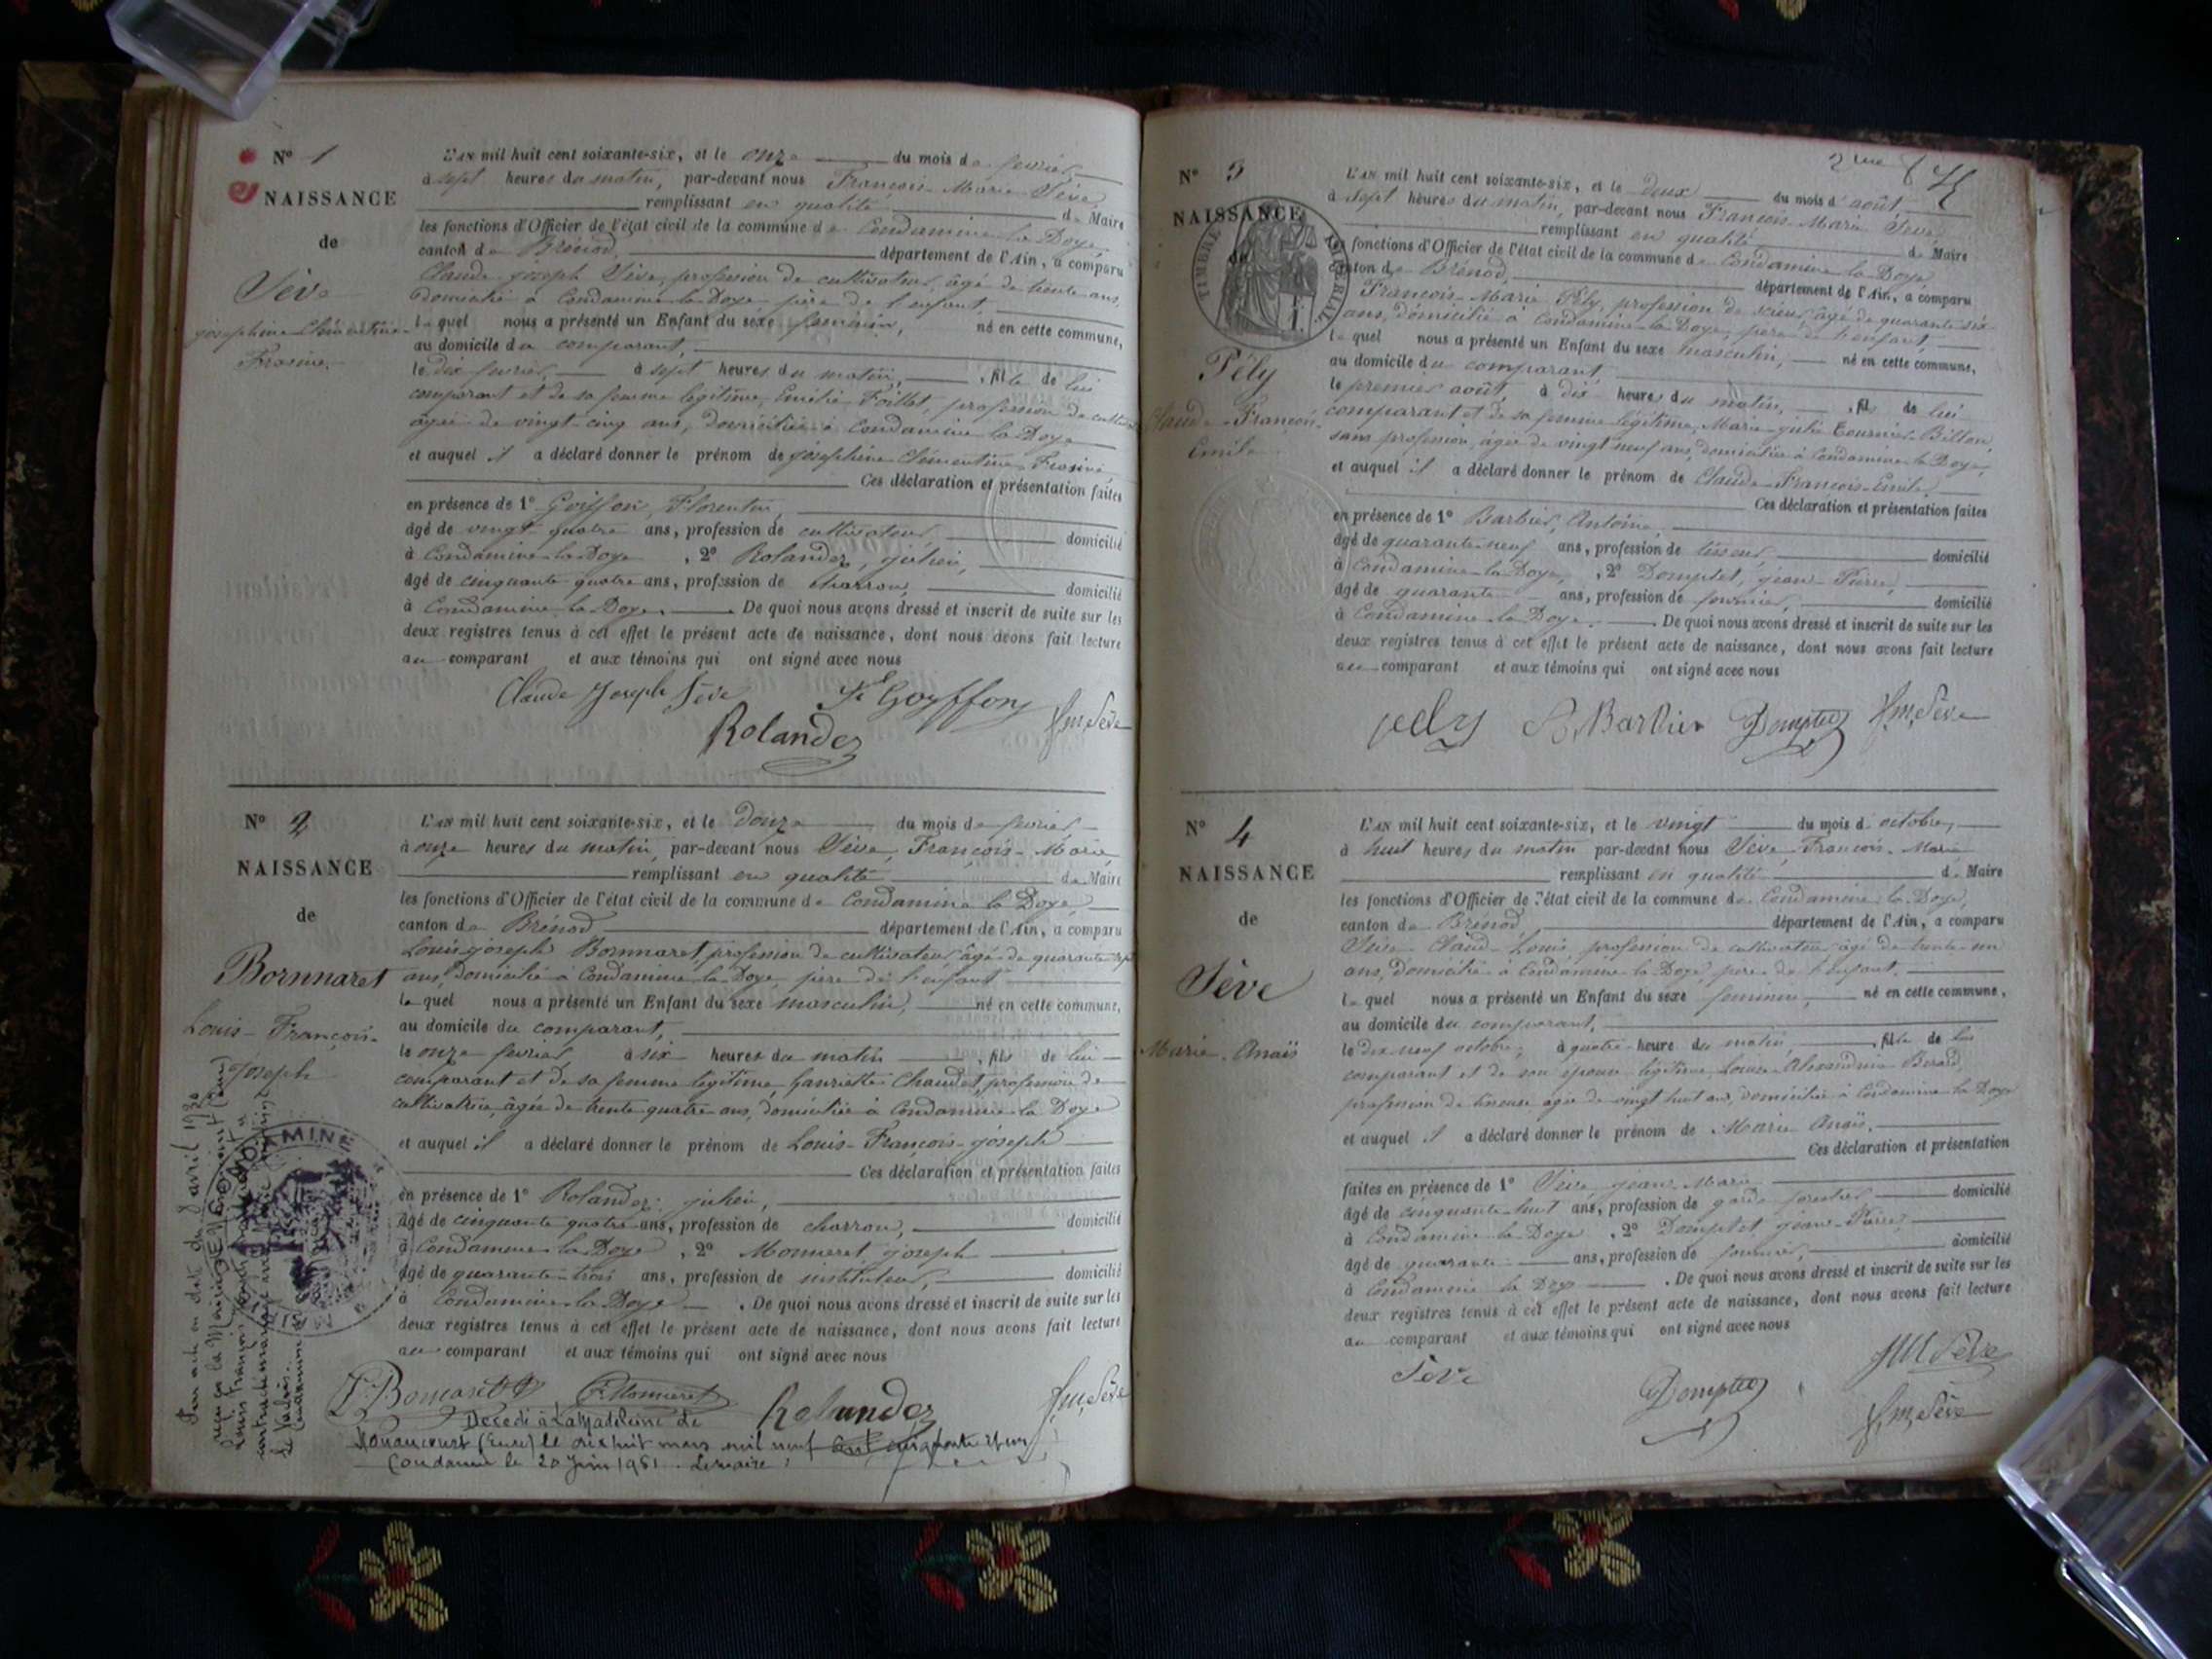 N° 1
NAISSANCE
de
Sève
joséphine Clémentine
Frosine
L'AN mil huit cent soixante-six, et le onze du mois de février
à sept heures du matin, par-devant nous François-Marie Sève
remplissant en qualité de Maire
les fonctions d'Officier de l'état civil de la commune de Condamine la Doye
canton de Brénod, département de l'Ain, a comparu
Claude joseph Sève, profession de cultivateur, âgé de trente ans,
domicilié à Condamine la Doye père de l'enfant,
lequel nous a présenté un Enfant du sexe féminin, né en cette commune,
au domicile du comparant,
le dix février, à sept heures du matin, fille de lui
comparant et de sa femme légitime, Emélie Foillet, profession de
âgée de vingt-cinq ans, domiciliée à Condamine la Doye
et auquel il a déclaré donner le prénom de joséphine Clémentine Frosine
Ces déclaration et présentation faites
en présence de 1° Goiffon, Florentin,
âgé de vingt quatre ans, profession de cultivateur, domicilié
à Condamine la Doye, 2° Rolandez, julien,
âgé de cinquante quatre ans, profession de charron, domicilié
à Condamine la Doye. De quoi nous avons dressé et inscrit de suite sur les
deux registres tenus à cet effet le présent acte de naissance, dont nous avons fait lecture
au comparant et aux témoins qui ont signé avec nous
Claude Joseph Sève Goyffon fm Sève
Rolandez
N° 2
NAISSANCE
de
Bornnaret
Louis-François-
Joseph
L'AN mil huit cent soixante-six, et le douze du mois de février
à onze heures du matin, par-devant nous Sève, François-Marie
remplissant en qualité de Maire
les fonctions d'Officier de l'état civil de la commune de Condamine la Doye,
canton de Brénod département de l'Ain, a comparu
Louis joseph Bornnaret, profession de cultivateur, âgé de quarante sept
ans, domicilié à Condamine la Doye, père de l'enfant
lequel nous a présenté un Enfant du sexe masculin, né en cette commune,
au domicile du comparant,
le onze février à six heures du matin, fils de lui
comparant et de sa femme légitime, henriette Chaudet, profession de
cultivatrice, âgée de trente quatre ans, domiciliée à Condamine la Doye
et auquel il a déclaré donner le prénom de Louis-François-joseph
Ces déclaration et présentation faites
en présence de 1° Rolandez julien,
âgé de cinquante quatre ans, profession de charron, domicilié
à Condamine la Doye, 2° Monneret joseph
âgé de quarante-trois ans, profession de instituteur, domicilié
à Condamine la Doye. De quoi nous avons dressé et inscrit de suite sur les
deux registres tenus à cet effet le présent acte de naissance, dont nous avons fait lecture
au comparant et aux témoins qui ont signé avec nous
Monneret Rolandez fm Sève
Décédé à La Madeleine de
Nonancourt (Eure) le dix huit mars mil neuf cent cinquante et un
Condamine le 20 Juin 1951. Le maire :
Par acte en date du 8 avril 1930
reçu en la Mairie
Louis François Joseph
a contracté mariage avec
CONDAMINE
2me
N° 3
NAISSANCE
de
TIMBRE IMPERIAL
Pély
Claude-François-
Emile
L'AN mil huit cent soixante-six, et le deux du mois d'août
à sept heures du matin, par-devant nous François-Marie Sève,
remplissant en qualité de Maire
les fonctions d'Officier de l'état civil de la commune de Condamine la Doye
canton de Brénod, département de l'Ain, a comparu
François-Marie Pély, profession de scieur, âgé de quarante six
ans, domicilié à Condamine la Doye, père de l'enfant,
lequel nous a présenté un Enfant du sexe masculin, né en cette commune,
au domicile du comparant
le premier août, à dix heures du matin, fils de lui
comparant et de sa femme légitime, Marie-julie Tournier-Billon,
sans profession, âgée de vingt neuf ans, domiciliée à Condamine la Doye,
et auquel il a déclaré donner le prénom de Claude-François-Emile,
Ces déclaration et présentation faites
en présence de 1° Barbier, Antoine,
âgé de quarante-neuf ans, profession de tisseur, domicilié
à Condamine la Doye, 2° Domptet, jean-Pierre,
âgé de quarante ans, profession de fournier, domicilié
à Condamine la Doye. De quoi nous avons dressé et inscrit de suite sur les
deux registres tenus à cet effet le présent acte de naissance, dont nous avons fait lecture
au comparant et aux témoins qui ont signé avec nous
pély Barbier Domptet fm Sève
N° 4
NAISSANCE
de
Sève
Marie-Anaïs
L'AN mil huit cent soixante-six, et le vingt du mois d'octobre,
à huit heures du matin par-devant nous Sève, François-Marie
remplissant en qualité de Maire
les fonctions d'Officier de l'état civil de la commune de Condamine la Doye,
canton de Brénod département de l'Ain, a comparu
Sève Claude Louis, profession de cultivateur âgé de trente un
ans, domicilié à Condamine la Doye, père de l'enfant,
lequel nous a présenté un Enfant du sexe féminin, né en cette commune,
au domicile du comparant,
le dix neuf octobre, à quatre heure du matin, fille de lui
comparant et de son épouse légitime, Louise Alexandrine Berard,
profession de tisseuse agée de vingt huit ans, domiciliée à Condamine la Doye
et auquel il a déclaré donner le prénom de Marie Anaïs.
Ces déclaration et présentation
faites en présence de 1° Sève jean-Marie
âgé de cinquante-huit ans, profession de garde forestier domicilié
à Condamine la Doye, 2° Domptet, jean-Pierre,
âgé de quarante ans, profession de fournier, domicilié
à Condamine la Doye. De quoi nous avons dressé et inscrit de suite sur les
deux registres tenus à cet effet le présent acte de naissance, dont nous avons fait lecture
au comparant et aux témoins qui ont signé avec nous
Sève Domptet JM Sève
fm Sève